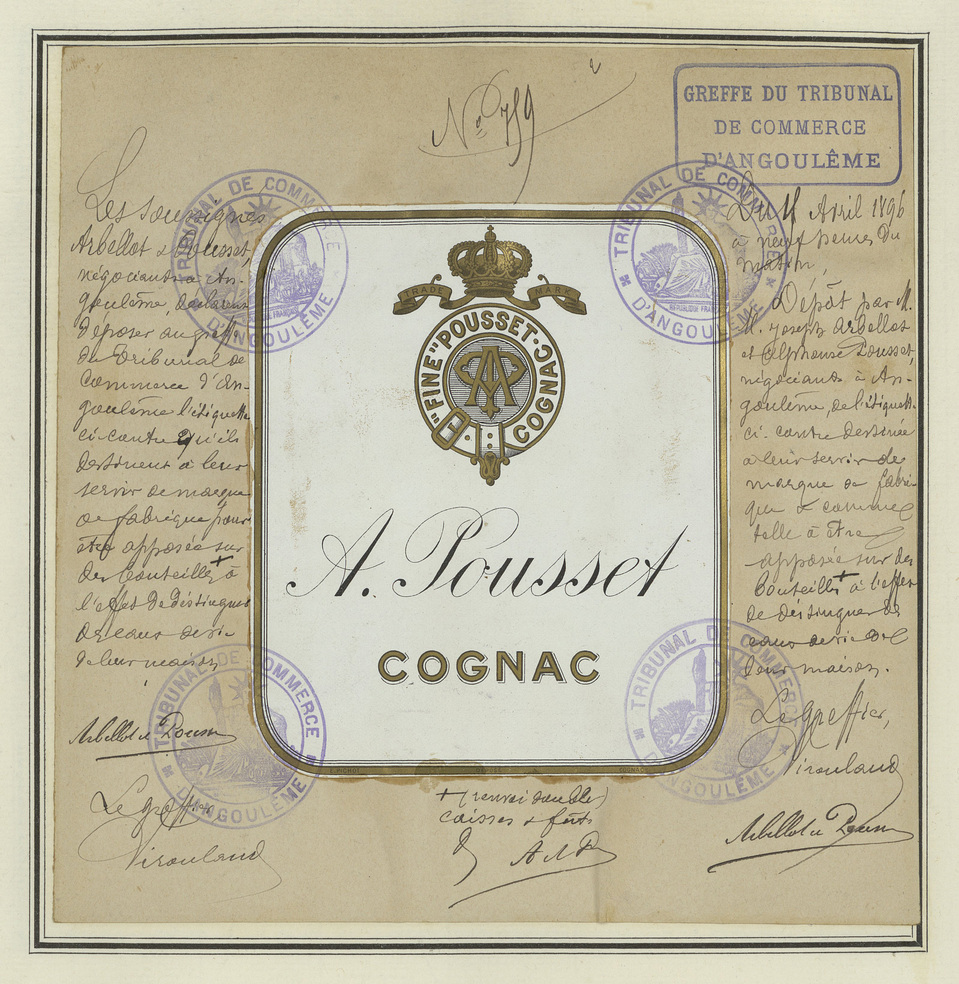 Nº 759
GREFFE DU TRIBUNAL
DE COMMERCE
D'ANGOULÊME
Les soussignés
Arbellot & Pousset,
négociants à An-
goulême, déclarent
déposer au greffe
du Tribunal de
Commerce d'An-
goulême l'étiquette
ci-contre qu'ils
destinent à leur
servir de marque
de fabrique pour
être apposée sur
des bouteilles + à
l'effet de distinguer
des eaux de vie
de leur maison
Arbellot & Pousset
Le greffier
Virouland
TRADE MARK
"FINE" POUSSET·COGNAC
AP
A. Pousset
COGNAC
Du Avril 1896
à neuf heures du
matin,
Dépôt par M.
M. Joseph Arbellot
et Alphonse Pousset,
négociants à An-
goulême, de l'étiquette
ci-contre destinée
à leur servir de
marque de fabri-
que & comme
telle à être
apposée sur des
bouteilles + à l'effet
de distinguer des
eaux de vie de
leur maison.
Le greffier,
Virouland
Arbellot & Pousset
+ (renvoi double)
caisses & fûts
A & P
TRIBUNAL DE COMMERCE
D'ANGOULÊME
TRIBUNAL DE COMMERCE
D'ANGOULÊME
TRIBUNAL DE COMMERCE
D'ANGOULÊME
TRIBUNAL DE COMMERCE
D'ANGOULÊME